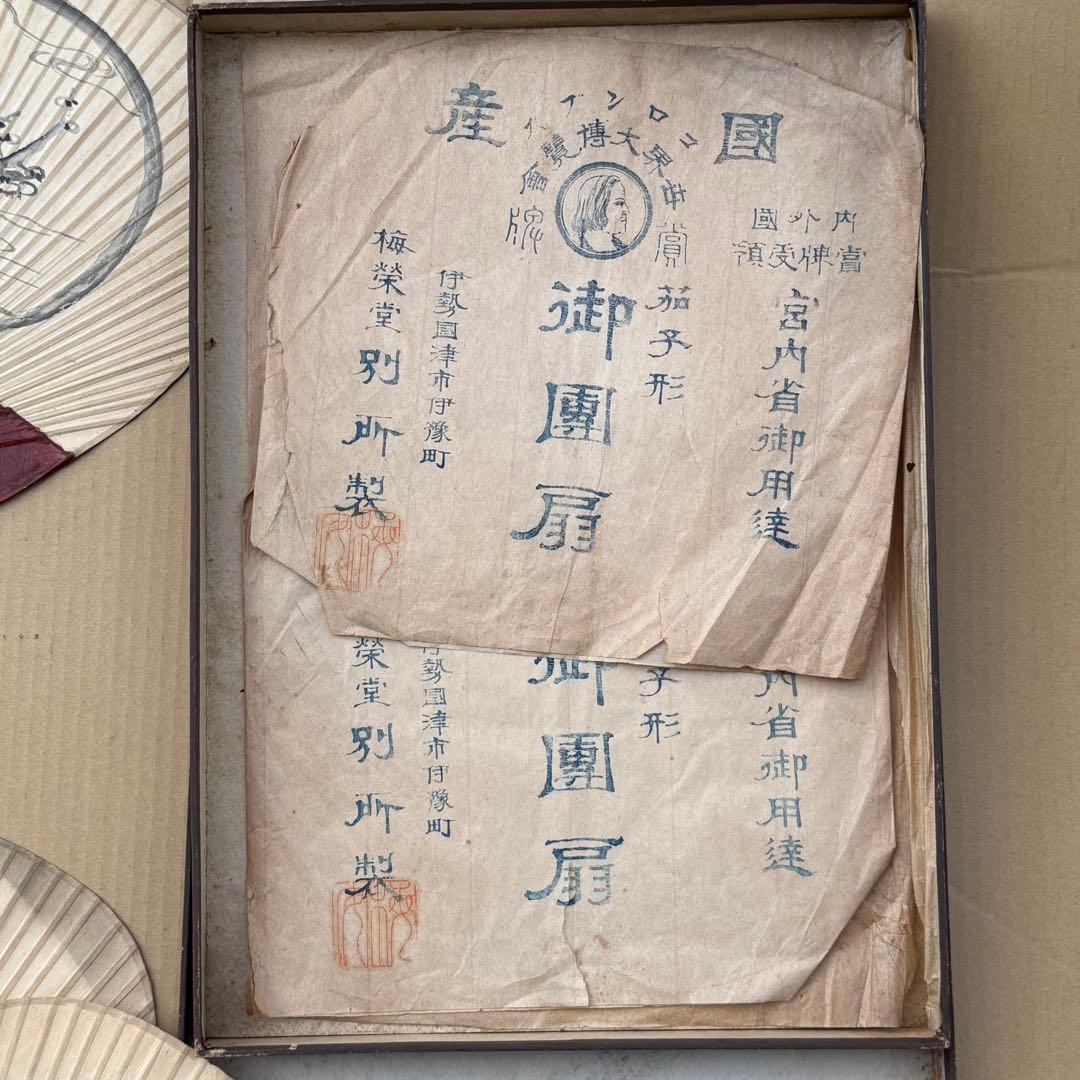 國產
コロンブス
世界大博覽會
賞牌
內外國
賞牌受領
宮內省御用達
茄子形
御團扇
伊勢國津市伊豫町
梅榮堂別所製
內省御用達
子形
御團扇
伊勢國津市伊豫町
榮堂別所製